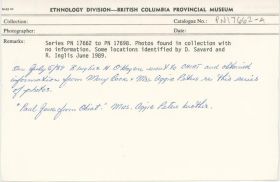 ETHNOLOGY DIVISION—BRITISH COLUMBIA PROVINCIAL MUSEUM
Collection: Catalogue No.: PN17662-A
Photographer: Date:
Remarks: Series PN 17662 to PN 17698. Photos found in collection with
no information. Some locations identified by D. Savard and
R. Inglis June 1989.
On July 5/89 went to and obtained
information from Mary & Mrs. Aggie Peters re this series
of photos.
"Paul from" Mrs. Aggie Peters brother.